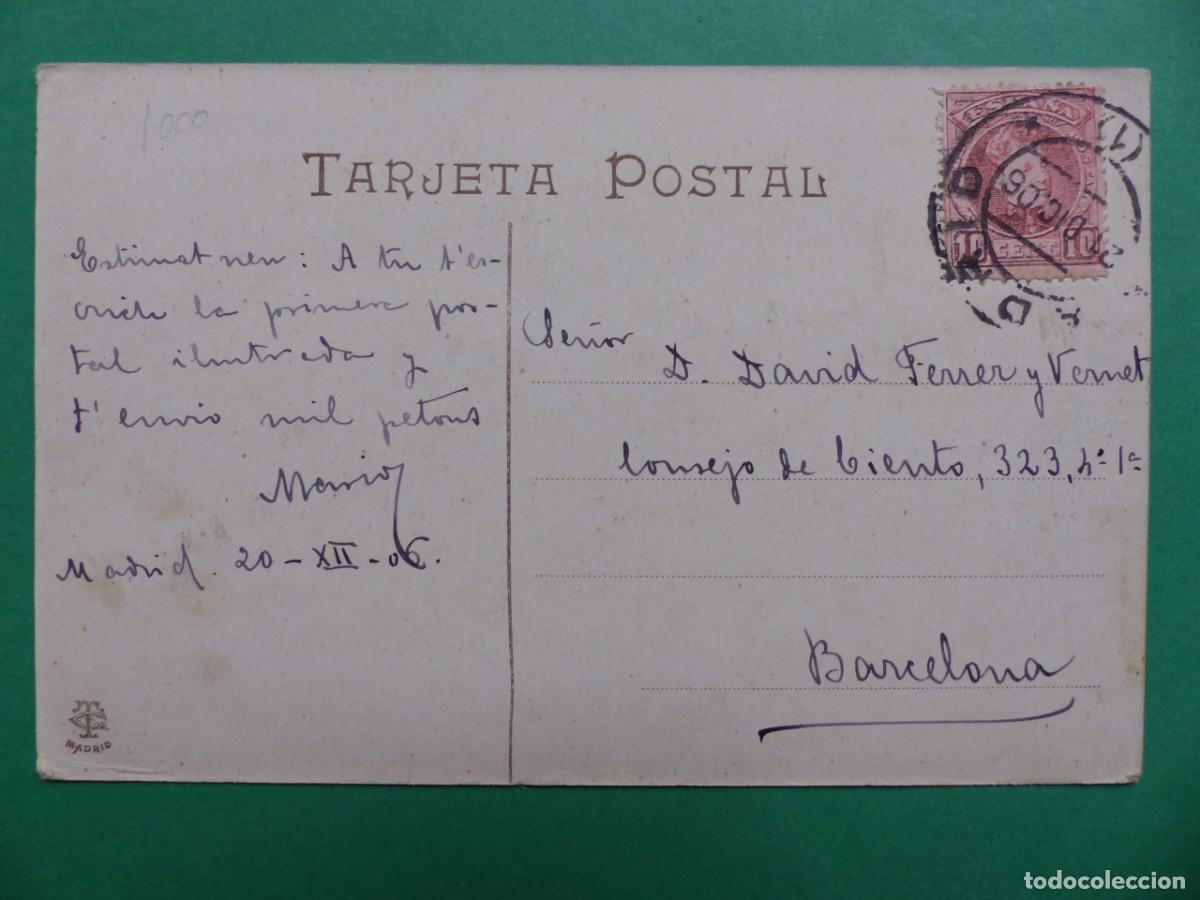 1000
TARJETA POSTAL
ESPAÑA
10 CENT 10
21 DIC 06
(1)
Estimat nen: A tu t'es-
crich la primera pos-
tal ilustrada y
t'envio mil petons
Mario
Madrid. 20-XII-06.
MADRID
Señor
D. David Ferrer y Vernet
Consejo de Ciento, 323, 4º 1ª
Barcelona
todocoleccion